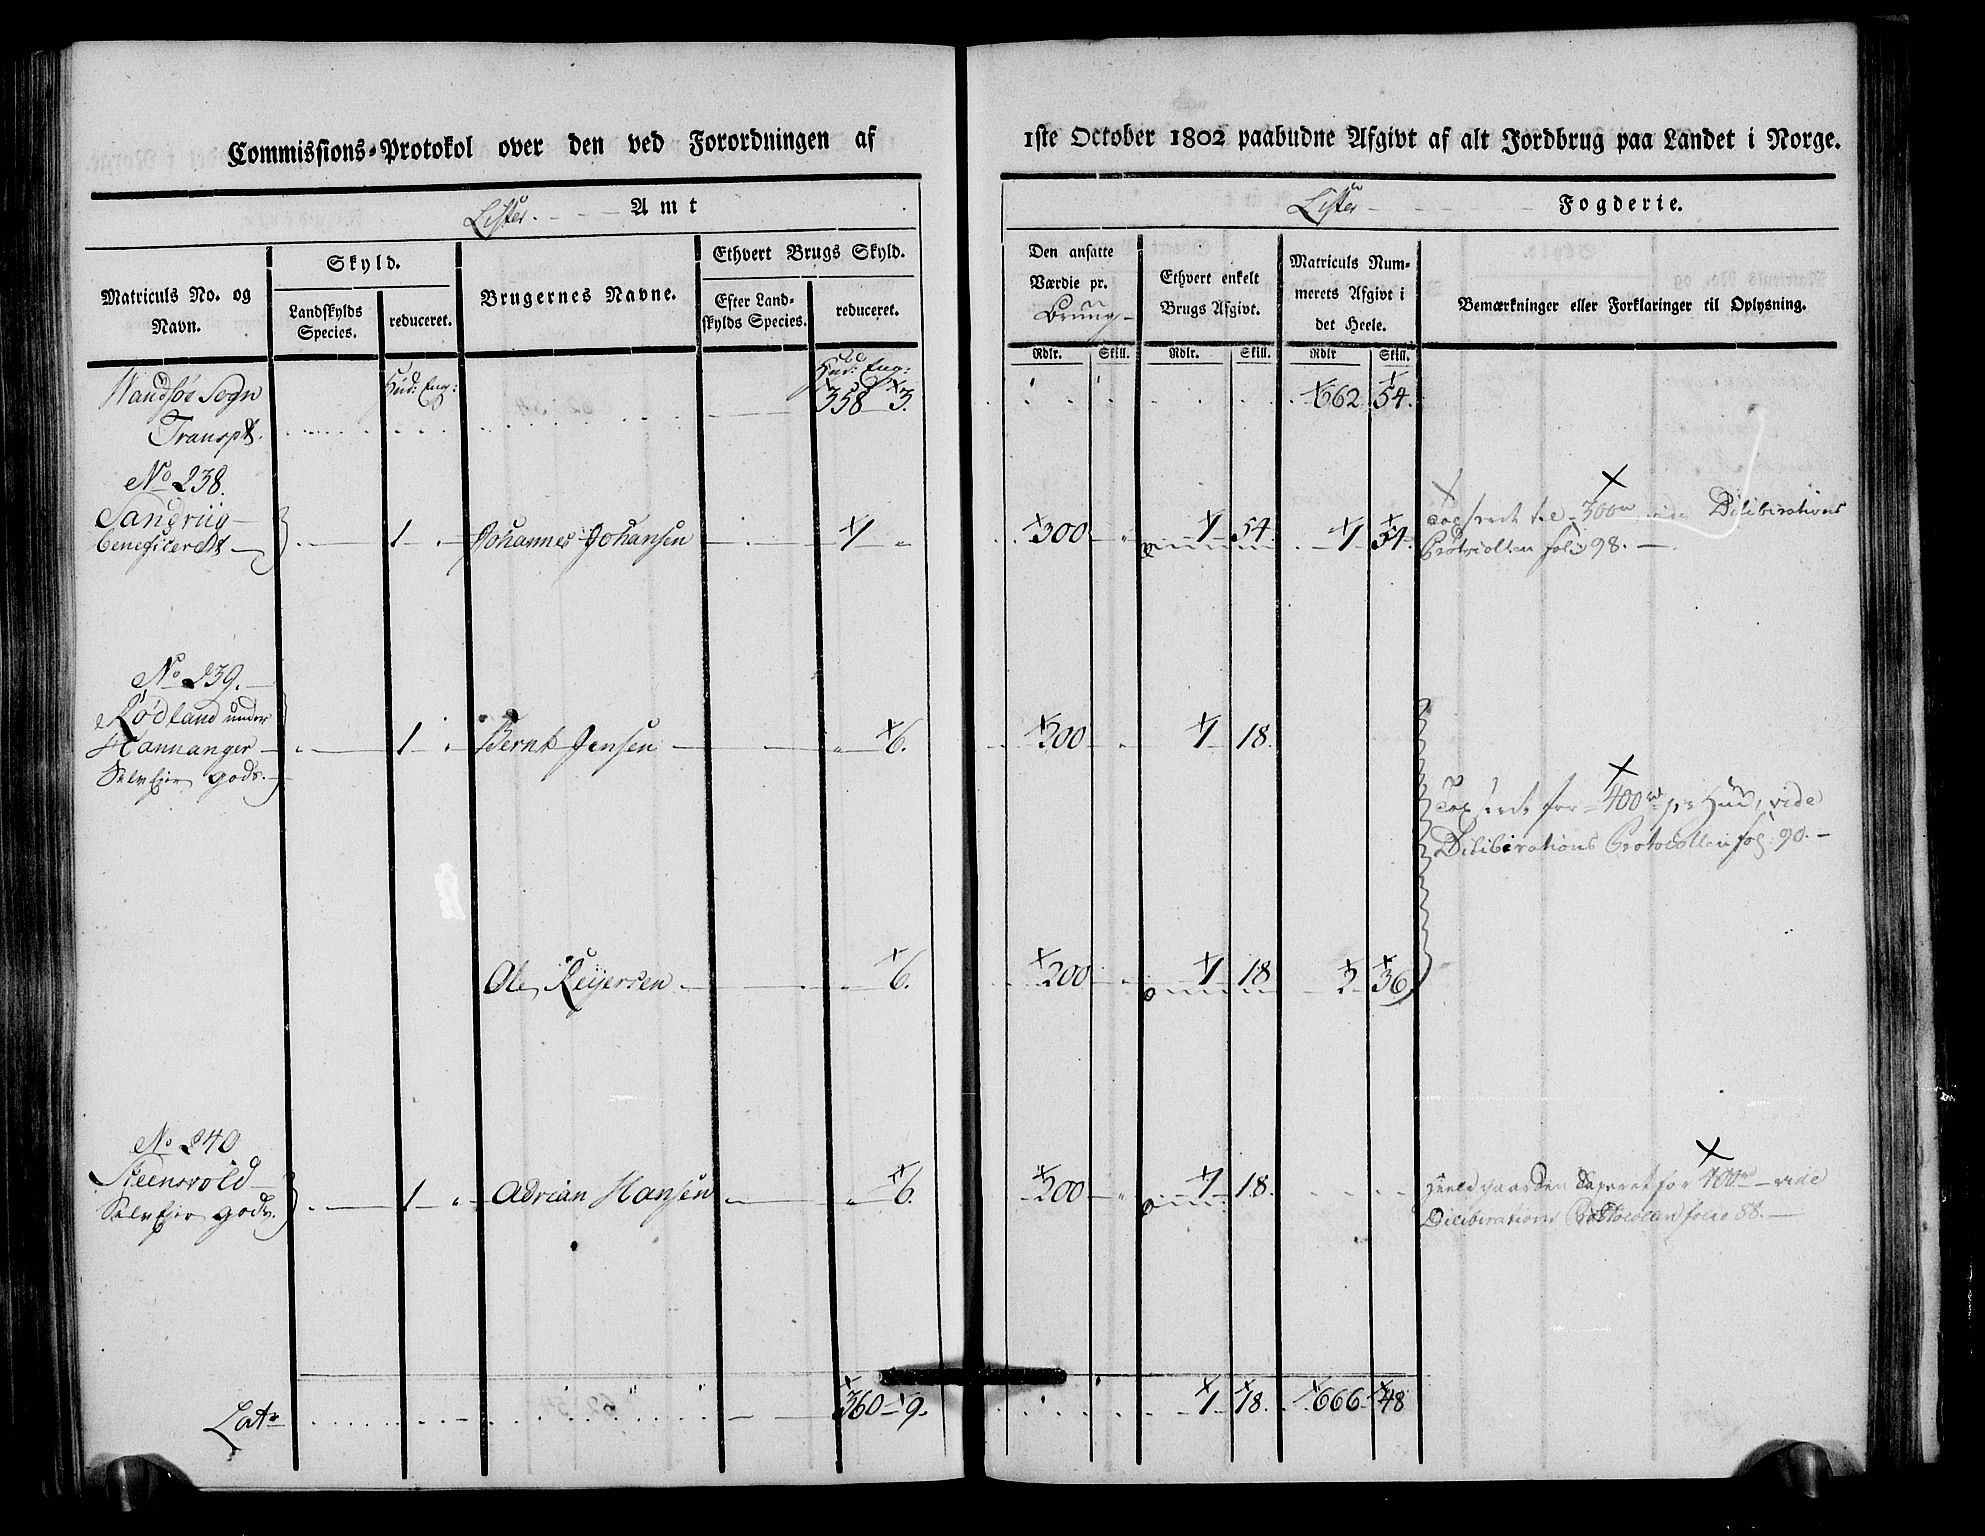 Commissions-Protokol over den ved Forordningen af
Lister. Amt
Matriculs No. og Navn.
Skyld.
Landskylds Species.
reduceret.
Brugernes Navne.
Ethvert Brugs Skyld.
Efter Landskylds Species.
reduceret.
Hud: Eng:
Hud: Eng:
Sogn
Transpt. 358 3.
No 238.
Sandriig
beneficeret 1 Johannes Johansen 1 "
No 239.
Rødland under
Hannanger 1 Bernt Jensen " 6.
Selv Eier gods.
Ole Reijersen " 6.
No 240
Steensvold
Selv Eier gods. 1 " Adrian Hansen " 6.
Latr 360 9.
1ste October 1802 paabudne Afgivt af alt Jordbrug paa Landet i Norge.
Lister Fogderie.
Den ansatte Værdie pr.
Brug
Ethvert enkelt Brugs Afgivt.
Matriculs Nummerets Afgivt i det Heele.
Bemærkninger eller Forklaringer til Oplysning.
Rdlr. Skill. Rdlr. Skill. Rdlr Skill.
662 54.
300 1 54. 1 54. Taxeret til 300 vide Deliberations
Protocollen fol: 98.
200 1 18.
Taxeret for 400 rd pr Hud, vide
Deliberations Protocollen fol. 90.
200 1 18 2 36
200 1 18. Heele Gaarden Taxeret for 400 rd vide
Deliberations Protocollen folio 88.
1 18. 666 48